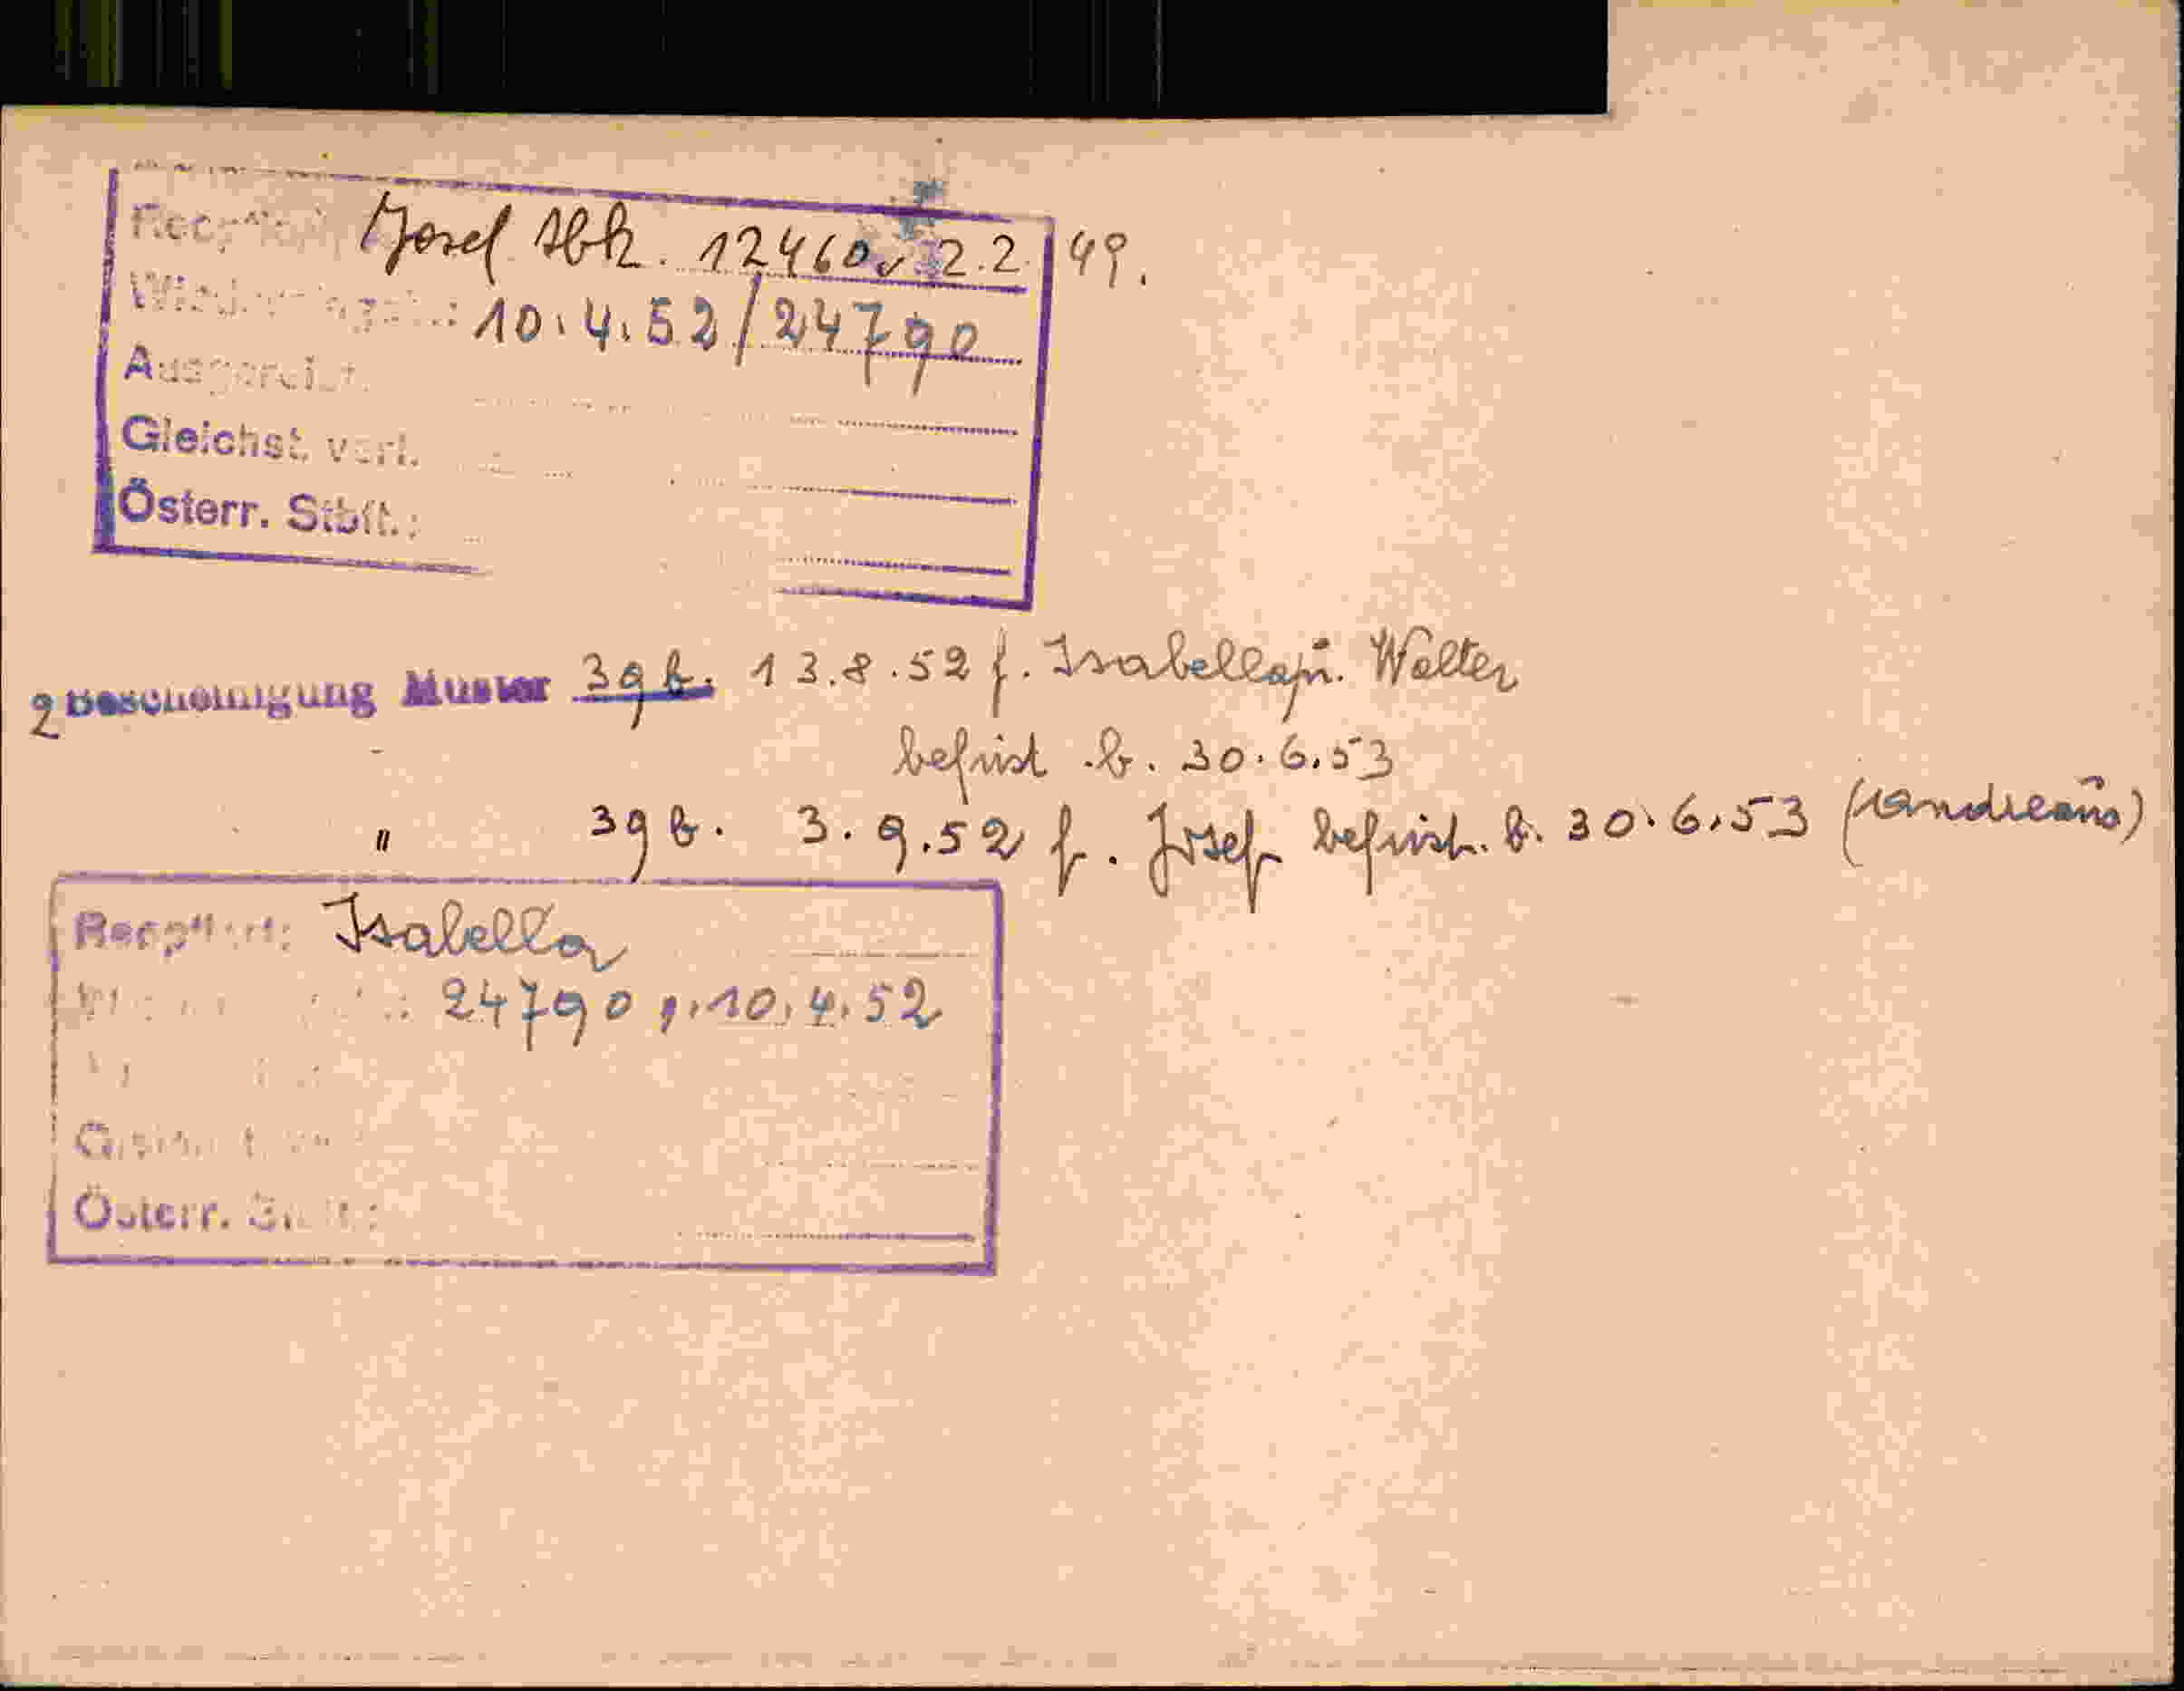 Recpflicht: Josef Abk. 12460 v. 2.2.49.
10.4.52/24790
Ausgereist:
Gleichst. verl.
Österr. Stbft.:
2 Bescheinigung Muster 39 b. 13.8.52 f. Isabella, Walter
befrist. b. 30.6.53
" 39 b. 3.9.52 f. Josef befrist. b. 30.6.53
Recpflicht: Isabella
24790, 10.4.52
Österr.